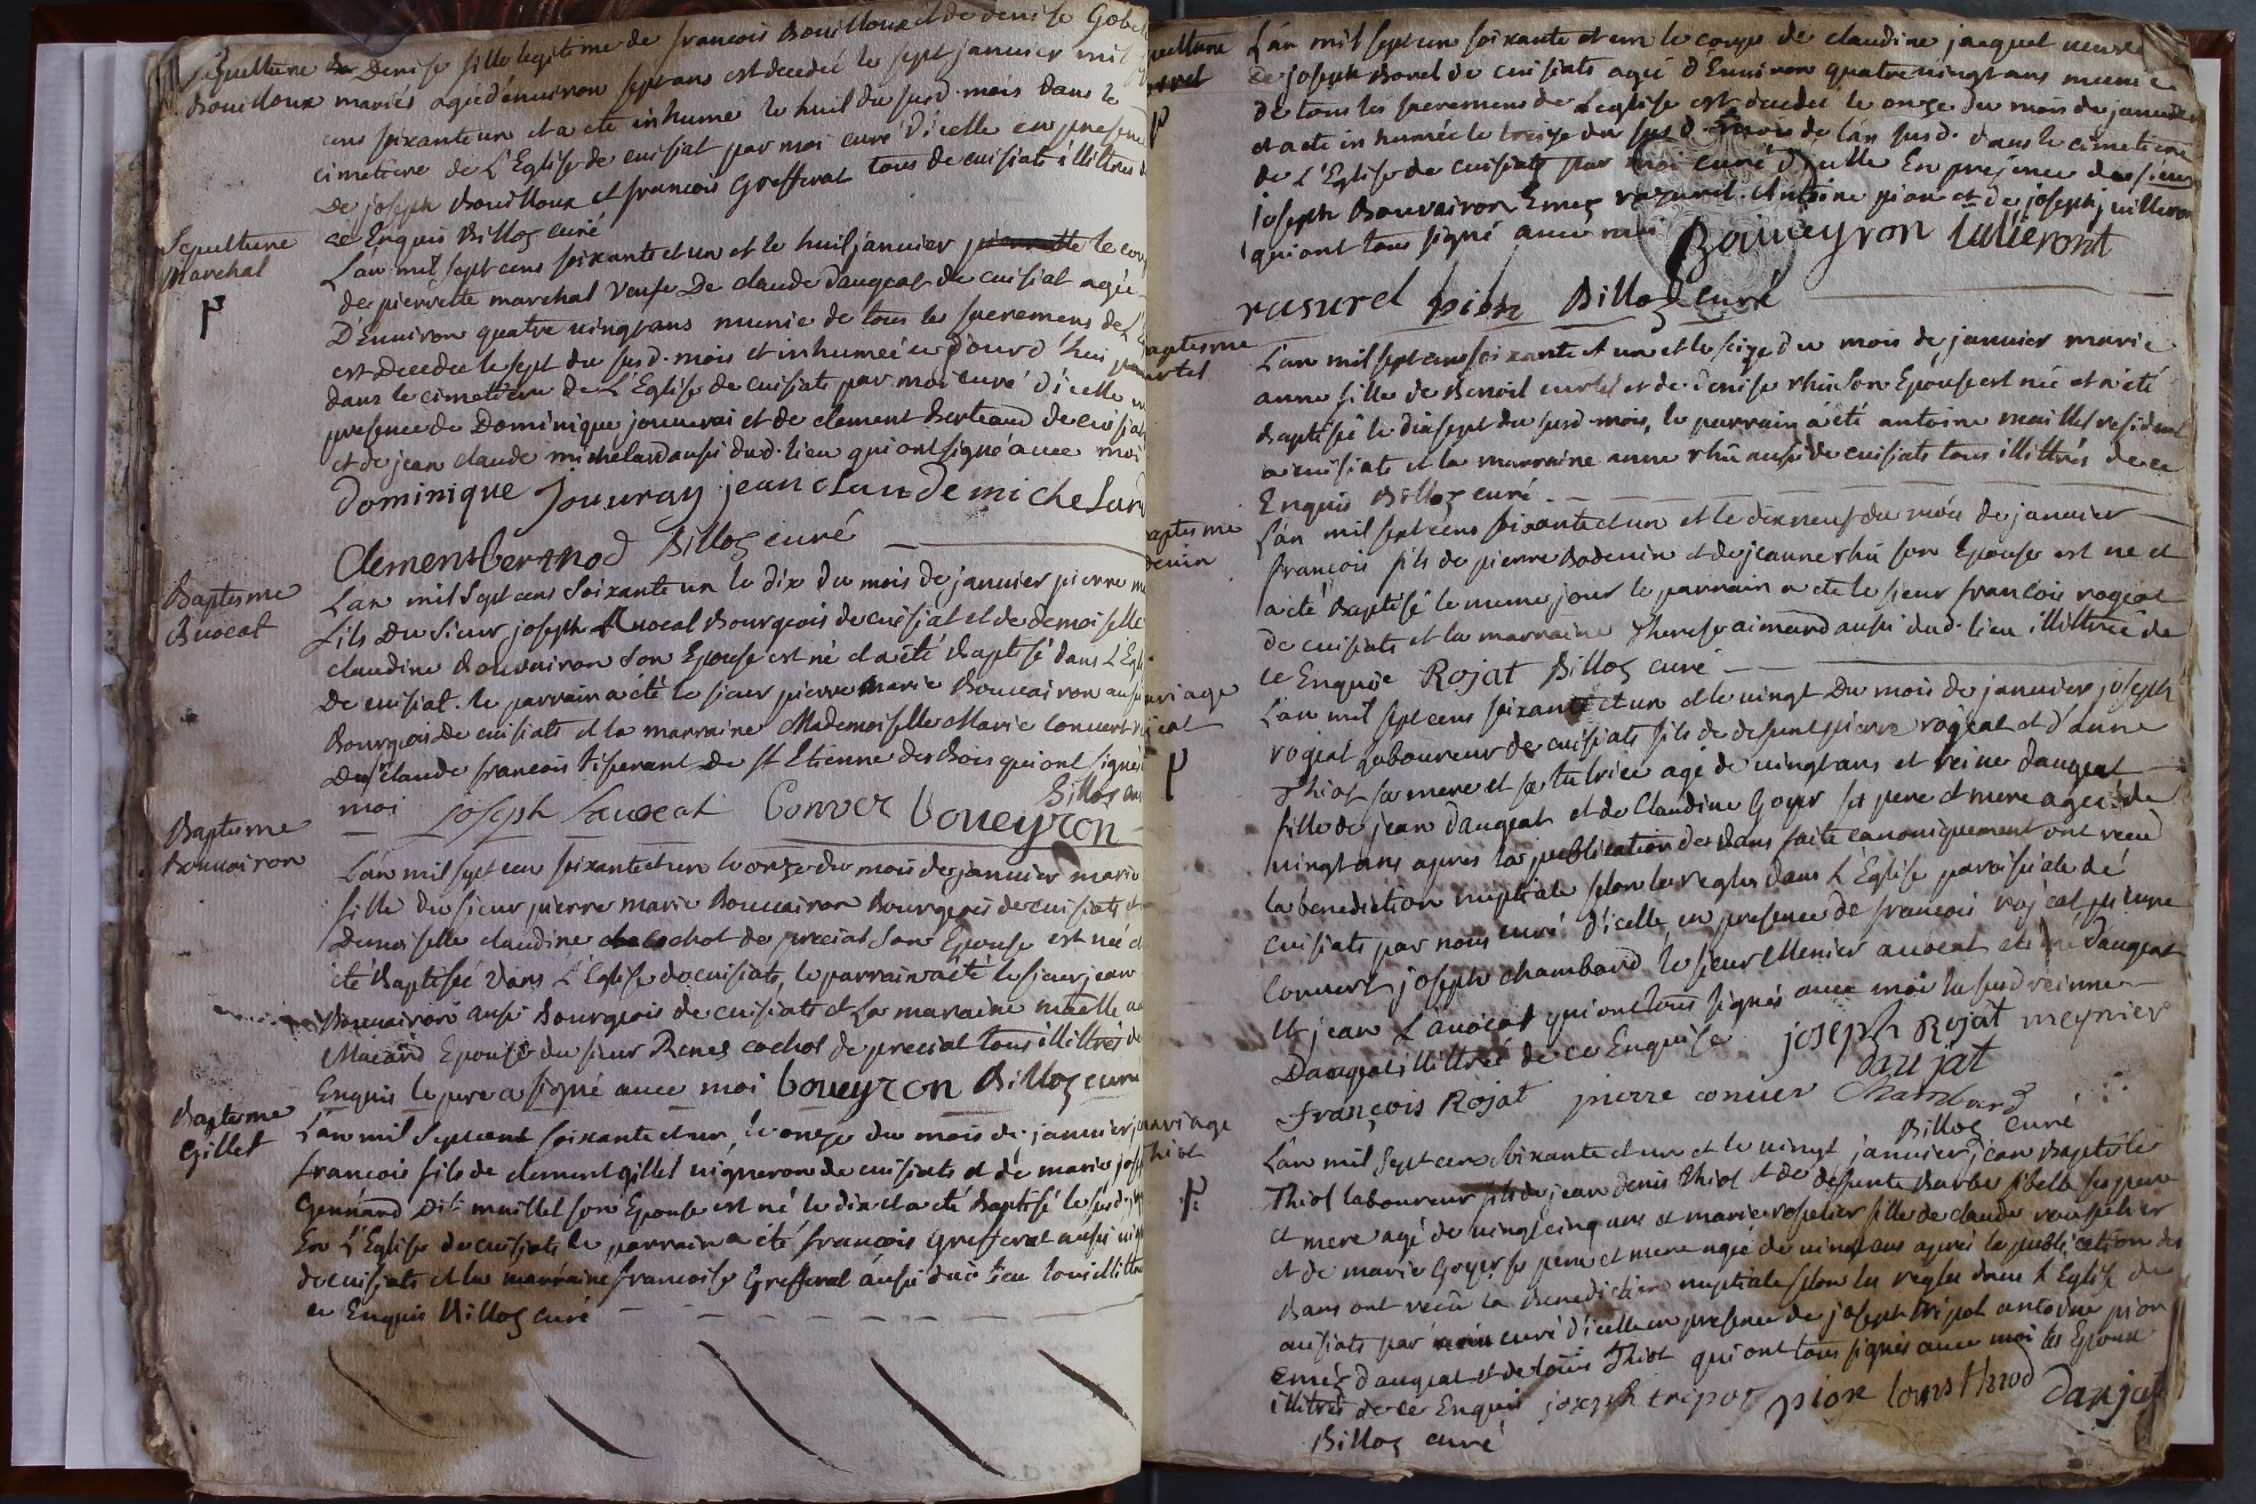 Sepulture de Denise fille legitime de francois Bouilloux et de denise Gobet
Bouilloux mariés agée d'environ sept ans est decedeé le sept janvier mil
cens soixante un et a eté inhume le huit du susd. mois dans le
cimetiere de L'Eglise de cuisiat par moi curé d'icelle en presence
De joseph Bouilloux et francois Grefferat tous de cuisiats illitres de
ce Enquis Billoz curé
Sepulture
Marechal
L'an mil sept cens soixante et un et le huit janvier pierrette le corps
de pierrette marechal veuse De claude Daugeat de cuisiat agée
D'Environ quatre vingt ans munie de tous les sacremens de L'
est decedee le sept du susd. mois et inhumeé ce jourd'hui
dans le cimetiere de L'Eglise de cuisiats par moi curé d'icelle en
presence de Dominique jouvrai et de clement Berteaud de cuisiats
et de jean claude michelard aussi dud. lieu qui ont signé avec moi
Dominique Jouvray jean claude michelard
Clement bertnod Billoz curé
Baptesme
Avocat
L'an mil Sept cens Soixante un le dix du mois de janvier pierre
fils Du sieur joseph Avocat Bourgeois de cuisiat et de demoiselle
claudine Bouvairon son Epouse est né et a été Baptisé dans L'Eglise
De cuisiat. le parrain a été le sieur pierre marie Bouvairon aussi
Bourgeois De cuisiats et la marraine Mademoiselle Marie Convert
Du s claude francois tisserant De st Etienne des Bois qui ont signés
moi joseph Lavocat Conver Boveyron Billoz curé
Baptesme
Bouvairon
L'an mil sept cen soixante et un le onze du mois de janvier marie
fille du sieur pierre marie Bouvairon Bourgeois de cuisiats et
Demoiselle claudine cochot de preciat son Epouse est neé et
été Baptisée dans L'Eglise de cuisiats, le parrain a été le sieur jean
Bouvairon aussi Bourgeois de cuisiats et La marraine
Macard Epouse du sieur Renez cochot de preciat tous illittrés de
Enquis le pere a signé avec moi Boveyron Billoz curé
Baptesme
Gillet
L'an mil Sept cent soixante et un, le onze du mois de janvier
francois fils de clement gillet vigneron de cuisiats et de marie
Gennard Dit maillet son Epouse est né le dix et a eté Baptisé le susd.
En L'Eglise de cuisiats le parrain a été francois Grefferat aussi
de cuisiats et la marraine francoise Grefferat aussi dud lieu tous illittrés
ce Enquis Billoz curé
L'an mil sept cen soixante et un le corps de claudine jacquet veuve
de joseph Borel de cuisiats agée d'Environ quatre vingt ans munie
de tous les sacremens de L'eglise est decedée le onze du mois de janvier
et a eté inhumée le treize du susd. mois de l'an susd. dans le cimetiere
de L'Eglise de cuisiats par moi curé d'icelle En presence des sieurs
joseph Bouvairon Emez rasurel Antoine pion et de joseph juilleron
qui ont tous signé avec moi Boiveyron
rasurel pion Billoz curé
L'an mil sept cens soixante et un et le seize du mois de janvier marie
anne fille de Benoit curtel et de denise rhü son Epouse est neé et a été
Baptisée le dix sept du susd. mois, le parrain a été antoine maillet resident
a cuisiats et la marraine anne rhü aussi de cuisiats tous illittrés de ce
Enquis Billoz curé
L'an mil sept cens soixante et un et le dix neuf du mois de janvier
francois fils de pierre Bodenin et de jeanne rhü son Epouse est ne et
a été Baptisé le meme jour le parrain a eté le sieur francois rogeat
de cuisiats et la marraine Therese aimard aussi dud. lieu illittrée de
ce Enquise Rojat Billoz curé
L'an mil sept cens soixante et un et le vingt Du mois de janvier joseph
rogeat Laboureur de cuisiats fils de defunt pierre rogeat et d'anne
Thiot sa mere et sa tutrice agé de vingt ans et reine Daugeat
fille de jean Daugeat et de Claudine Goyer ses pere et mere ageé de
vingt ans apres la publication des Bans faite canoniquement ont recu
la benediction nuptiale selon les regles dans L'Eglise paroissiale de
cuisiats par nous curé d'icelle, en presence de francois rojeat, pierre
convert joseph chambard le sieur Menier avocat Daugeat
et jean L'avocat qui ont tous signés avec moi la susd reinne
Daugeat illittrée de ce Enquise joseph Rojat meynier
daujat
françois Rojat pierre conver Chambard
Billoz curé
L'an mil Sept cen soixante et un et le vingt janvier jean Baptiste
Thiot laboureur fils de jean denis thiot et de deffunte Barbe sibelle ses pere
et mere agé de vingt cinq ans et marie rospelier fille de claude rouspelier
et de marie Goyer se pere et mere agée de vingt ans apres la publication des
Bans ont recu la Benediction nuptiale selon les regles dans L'Eglise de
cuisiats par curé d'icelle en presence de joseph tripot antoine pion
emez daugeat et de louis Thiot qui ont tous signés avec moi les Epoux
illitres de ce Enquis joseph tripoz pion louis thiod Daujat
Billoz curé